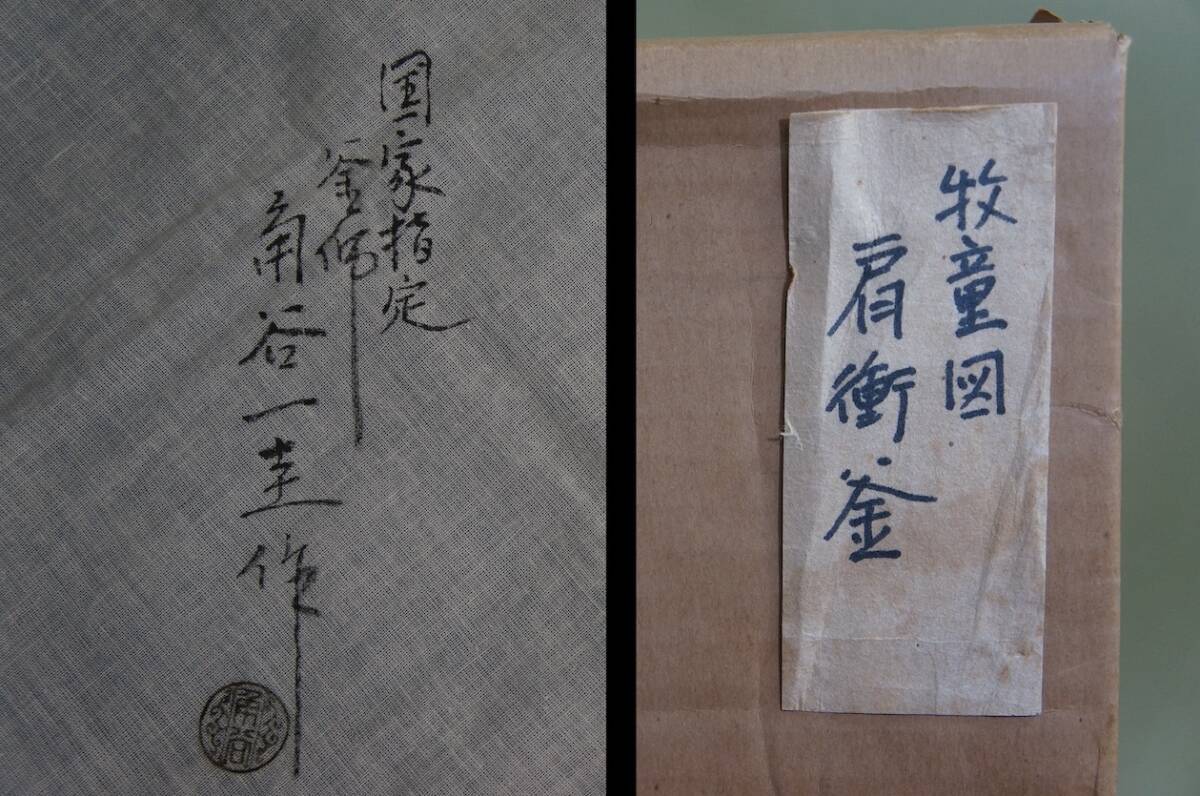 国家指定
釜師
角谷一圭作
角谷
牧童図
肩衝釜